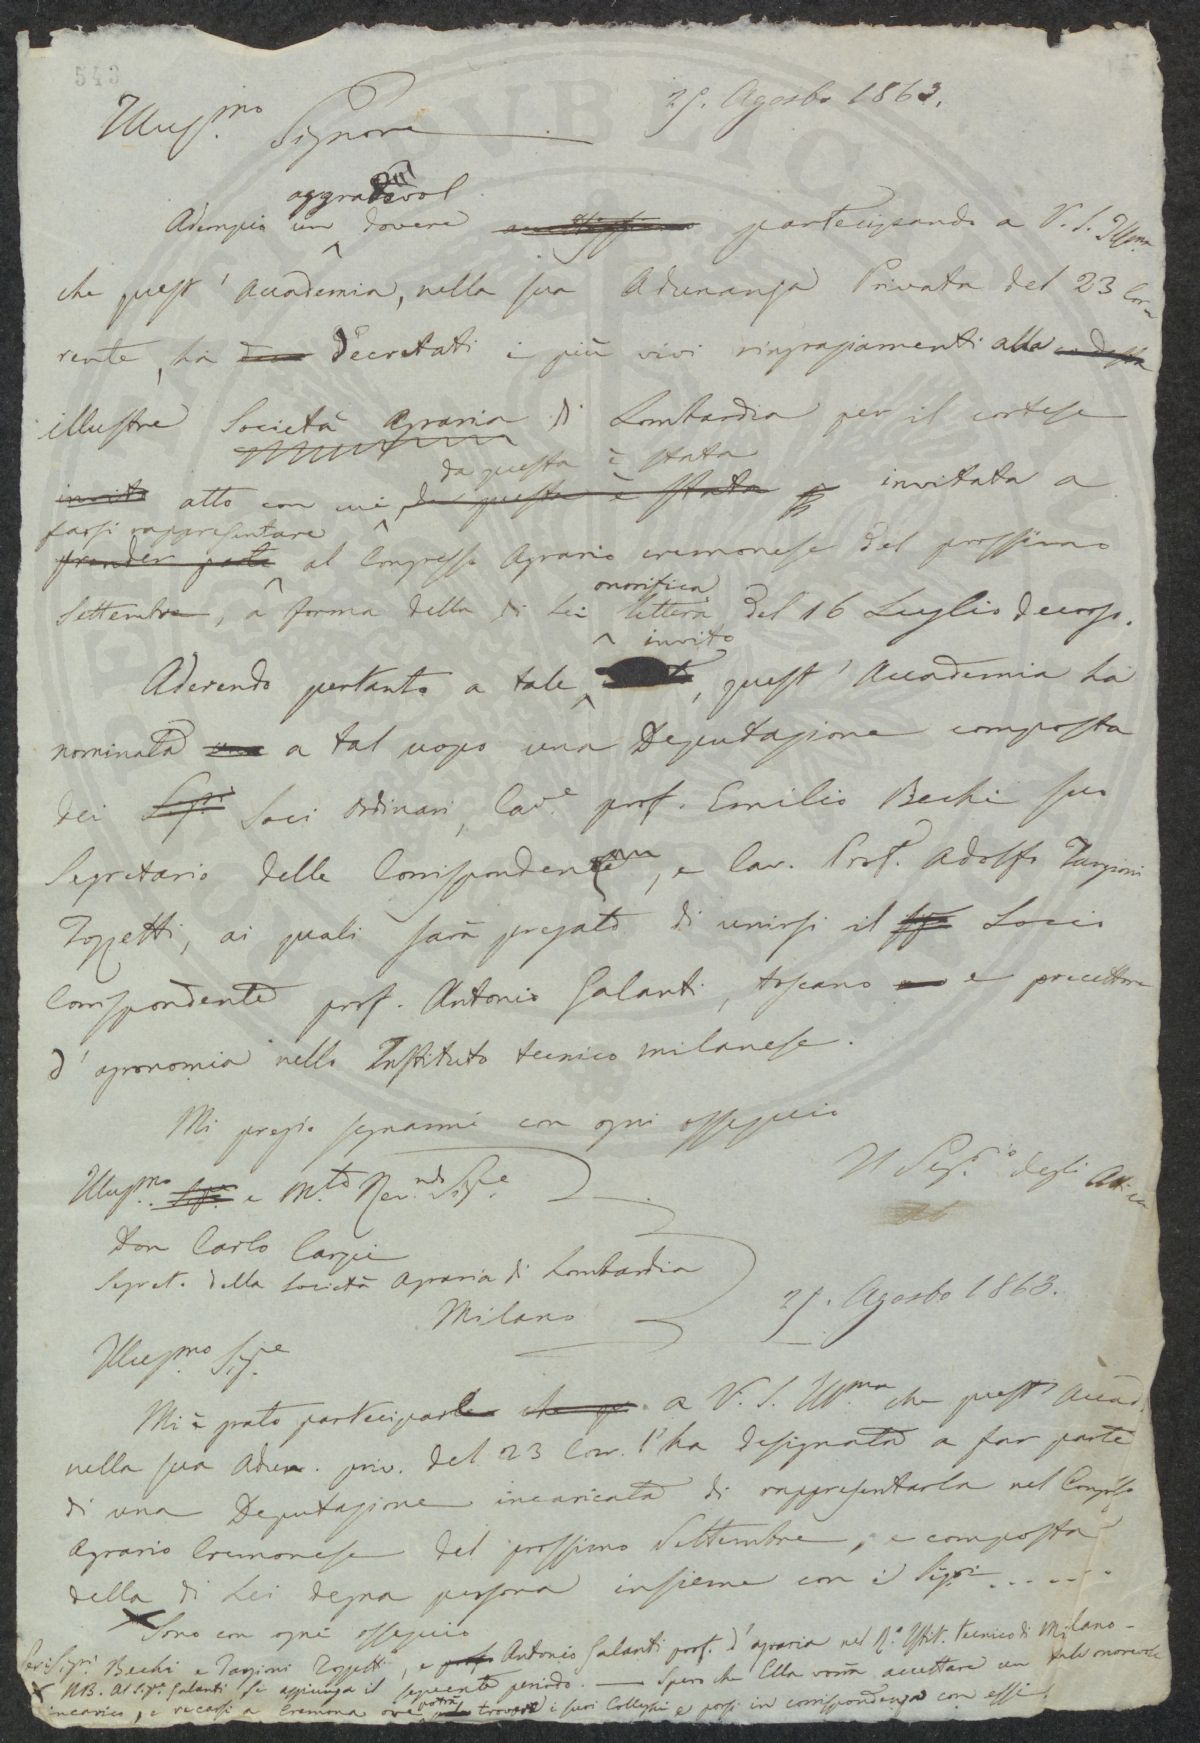 543
25. Agosto 1863.
Illus.mo Signore
aggradevol
Adempio un dovere partecipando a V. S. Illma
che quest' Accademia, nella sua Adunanza Privata del 23 Cor-
rente, ha decretati i più vivi ringraziamenti alla
illustre Società Agraria di Lombardia per il cortese
da questa è stata
invito atto con cui da questa è stata invitata a
farsi rappresentare
prender parte al Congresso Agrario cremonese del prossimo
onorifica
Settembre, a forma della di Lei lettera del 16 Luglio decorso.
invito
Aderendo pertanto a tale, quest' Accademia ha
nominata una a tal uopo una Deputazione composta
dei Sigri Soci Ordinari, Cav.e prof. Emilio Bechi suo
Segretario delle Corrispondenze, e Cav. Prof. Adolfo Targioni
Tozzetti, ai quali sarà pregato di unirsi il Socio
Corrispondente prof. Antonio Galanti, toscano e precettore
d' agronomia nello Instituto tecnico milanese.
Mi pregio segnarmi con ogni ossequio
Il Seg.rio degli Atti
Illus.mo e M.to Rev.ndo Sig.re
Don Carlo
Segret. della Società Agraria di Lombardia
Milano
25. Agosto 1863.
Illus.mo Sig.re
Mi è grato partecipare che a V. S. Ill.ma che quest' Accad.
nella sua Adun. priv. del 23 Corr. l' ha designata a far parte
di una Deputazione incaricata di rappresentarla nel Congresso
Agrario Cremonese del prossimo Settembre, e composta
della di Lei degna persona insieme con i Sigri ......
Sono con ogni ossequio
Per i Sigri Bechi e Targioni Tozzetti, e prof. Antonio Galanti prof. d' agraria nel R.o Istit. tecnico di Milano-
X NB. Al Sigr. Galanti si aggiunga il seguente periodo. — Spero che Ella vorrà accettare un tale onorevole
potrà
incarico, e recarsi a Cremona ove trovare i suoi Colleghi e porsi in corrispondenza con essi.